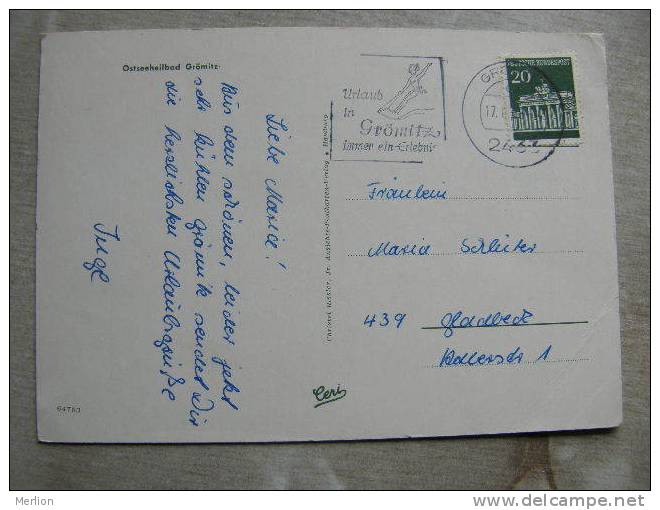 Ostseeheilbad Grömitz
Liebe Maria!
Aus dem schönen, leider jetzt
sehr kühlen Grömitz sendet Dir
die herzlichsten Urlaubsgrüße
Inge
Urlaub
in
Grömitz
immer ein Erlebnis
17.
2433
DEUTSCHE BUNDESPOST
20
Fräulein
Maria Schlüter
439 Gladbeck
Ceri
Hamburg
Merlion
www.delcampe.net